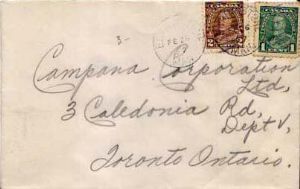 3-
CANADA
2
CANADA
1
Campana Corporation
Ltd,
3 Caledonia Rd,
Dept V,
Toronto Ontario.